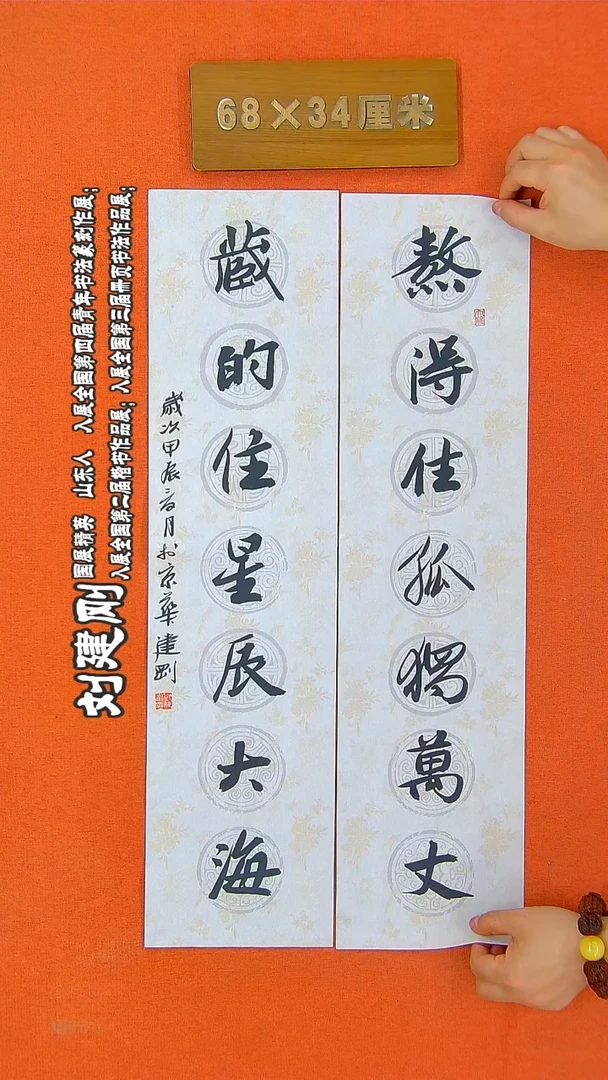 68×34厘米
熬得住孤獨萬丈
蔵的住星辰大海
歲次甲辰三月於京華建剛
刘建刚
国展精英 山东人 入展全国第四届青年书法篆刻作展；
入展全国第二届楷书作品展；入展全国第三届册页书法作品展；